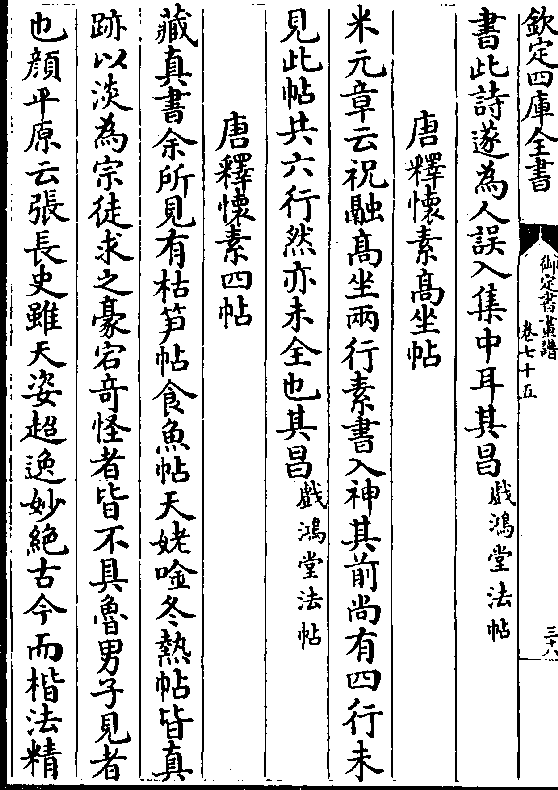 欽定四庫全書
御定書畫譜
卷七十五
三十八
書此詩遂為人誤入集中耳其昌戲鴻堂法帖
唐釋懷素高坐帖
米元章云祝融高坐兩行素書入神其前尚有四行未
見此帖共六行然亦未全也其昌戲鴻堂法帖
唐釋懷素四帖
藏真書余所見有枯筍帖食魚帖天姥唫冬熱帖皆真
跡以淡為宗徒求之豪宕奇怪者皆不具魯男子見者
也顔平原云張長史雖天姿超逸妙絶古今而楷法精